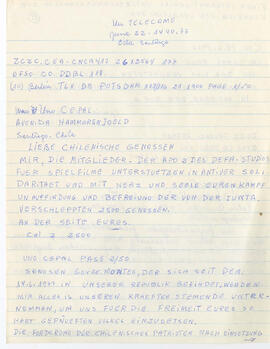 Uno TELECOMO
June 22 - 1440.77
Cita Santiago
ZCZC.CEA.
OFSO CO. DDBL 118.
Berlin TLX DB POTSDAM 1900 PAGE 1/50
Uno CEPAL
AVENIDA HAMMARSJOELD
Santiago. Chile
LIEBE CHILENISCHE GENOSSEN
MIR, DIE MITGLIEDER. DER APO 2 DES DEFA-STUDIOS
FUER SPIELFILME UNTERSTUETZEN IN AKTIVER SOLI
DARITAET UND MIT HERZ UND SEELE EUREN KAMPF.
UM AUFFINDUNG UND BEFREIUNG DER VON DER JUNTA,
VERSCHLEPPTEN 2500 GENOSSEN.
AN DER SEITE EURES.
Col 2 2500
UNO CEPAL PAGE 2/50
GENOSSEN MONTES, DER SICH SEIT DEM
IN UNSERER REPUBLIK BEFINDET, WERDEN
WIR ALLES IN UNSEREN KRAEFTEN STEHENDE UNTER-
NEHMEN, UM UNS FUER DIE FREIHEIT EURES SO
HART GEPRUEFTEN VOLKES EINZUSETZEN.
DIE FORDERUNG DER CHILENISCHEN PATRIOTEN NACH EINSETZUNG